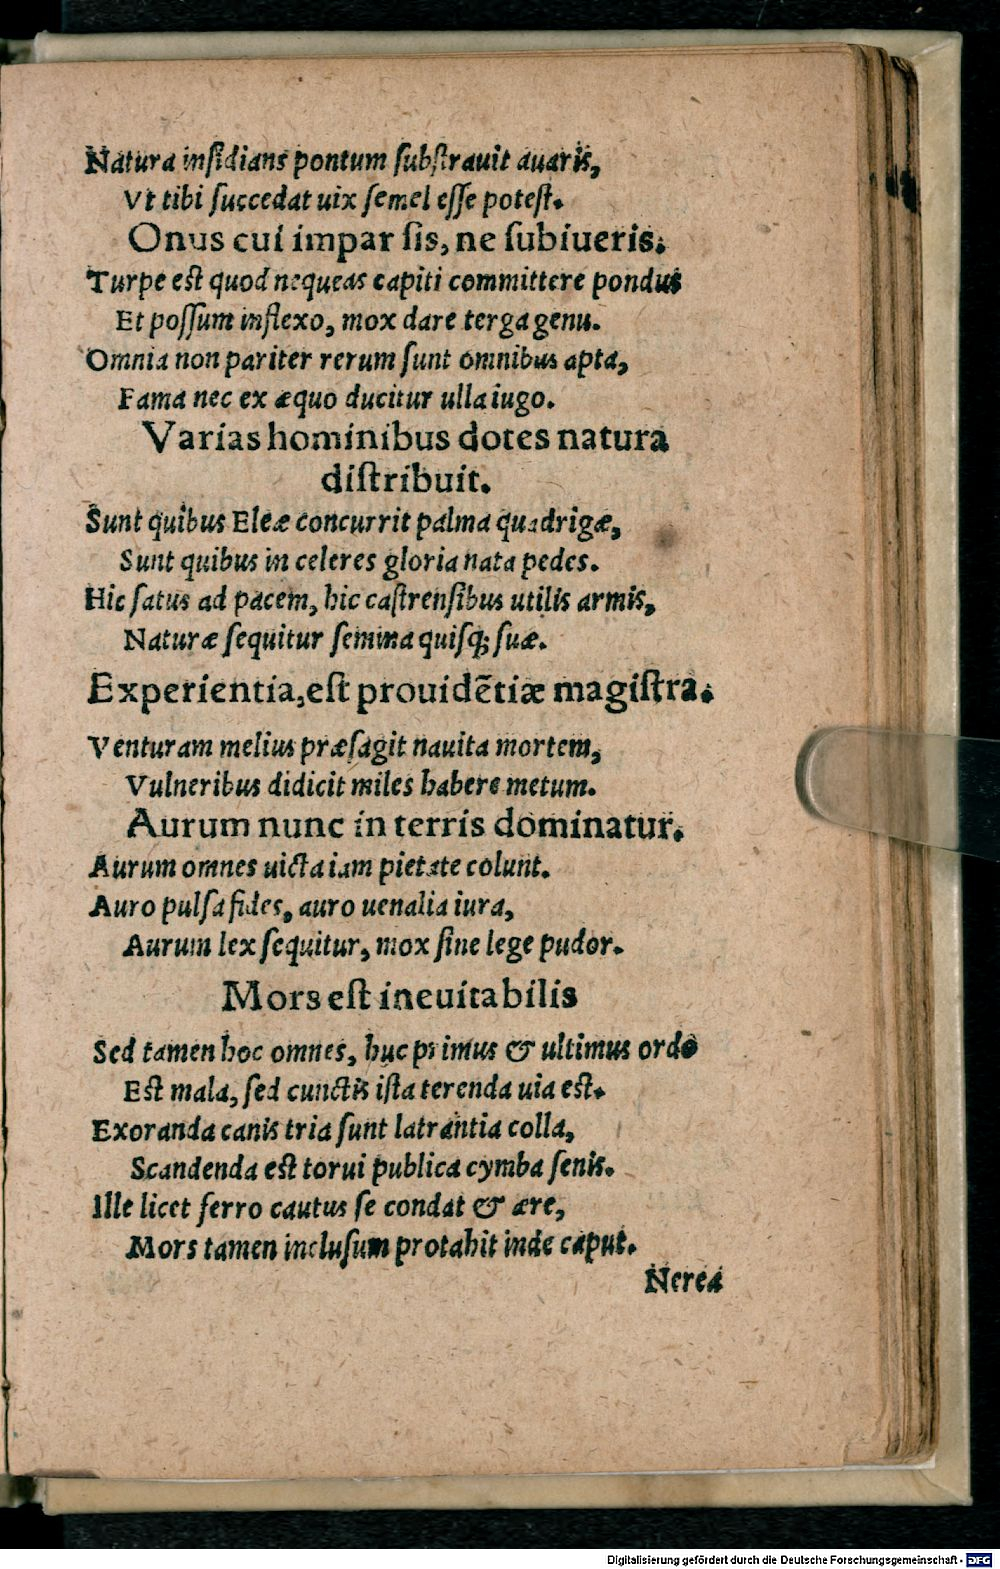 Natura inſidians pontum ſubſtrauit auaris,
Vt tibi ſuccedat uix ſemel eſſe poteſt.
Onus cui impar ſis, ne ſubiueris.
Turpe eſt quod nequeas capiti committere pondus
Et poſſum inflexo, mox dare terga genu.
Omnia non pariter rerum ſunt omnibus apta,
Fama nec ex æquo ducitur ulla iugo.
Varias hominibus dotes natura
diſtribuit.
Sunt quibus Eleæ concurrit palma quadrigæ,
Sunt quibus in celeres gloria nata pedes.
Hic ſatus ad pacem, hic caſtrenſibus utilis armis,
Naturæ ſequitur ſemina quiſq; ſuæ.
Experientia, eſt prouidẽtiæ magiſtra.
Venturam melius præſagit nauita mortem,
Vulneribus didicit miles habere metum.
Aurum nunc in terris dominatur.
Aurum omnes uicta iam pietate colunt.
Auro pulſa fides, auro uenalia iura,
Aurum lex ſequitur, mox ſine lege pudor.
Mors eſt ineuitabilis
Sed tamen hoc omnes, huc primus & ultimus ordo
Eſt mala, ſed cunctis iſta terenda uia eſt.
Exoranda canis tria ſunt latrantia colla,
Scandenda eſt torui publica cymba ſenis.
Ille licet ferro cautus ſe condat & ære,
Mors tamen incluſum protahit inde caput.
Nerea
Digitalisierung gefördert durch die Deutsche Forschungsgemeinschaft - DFG